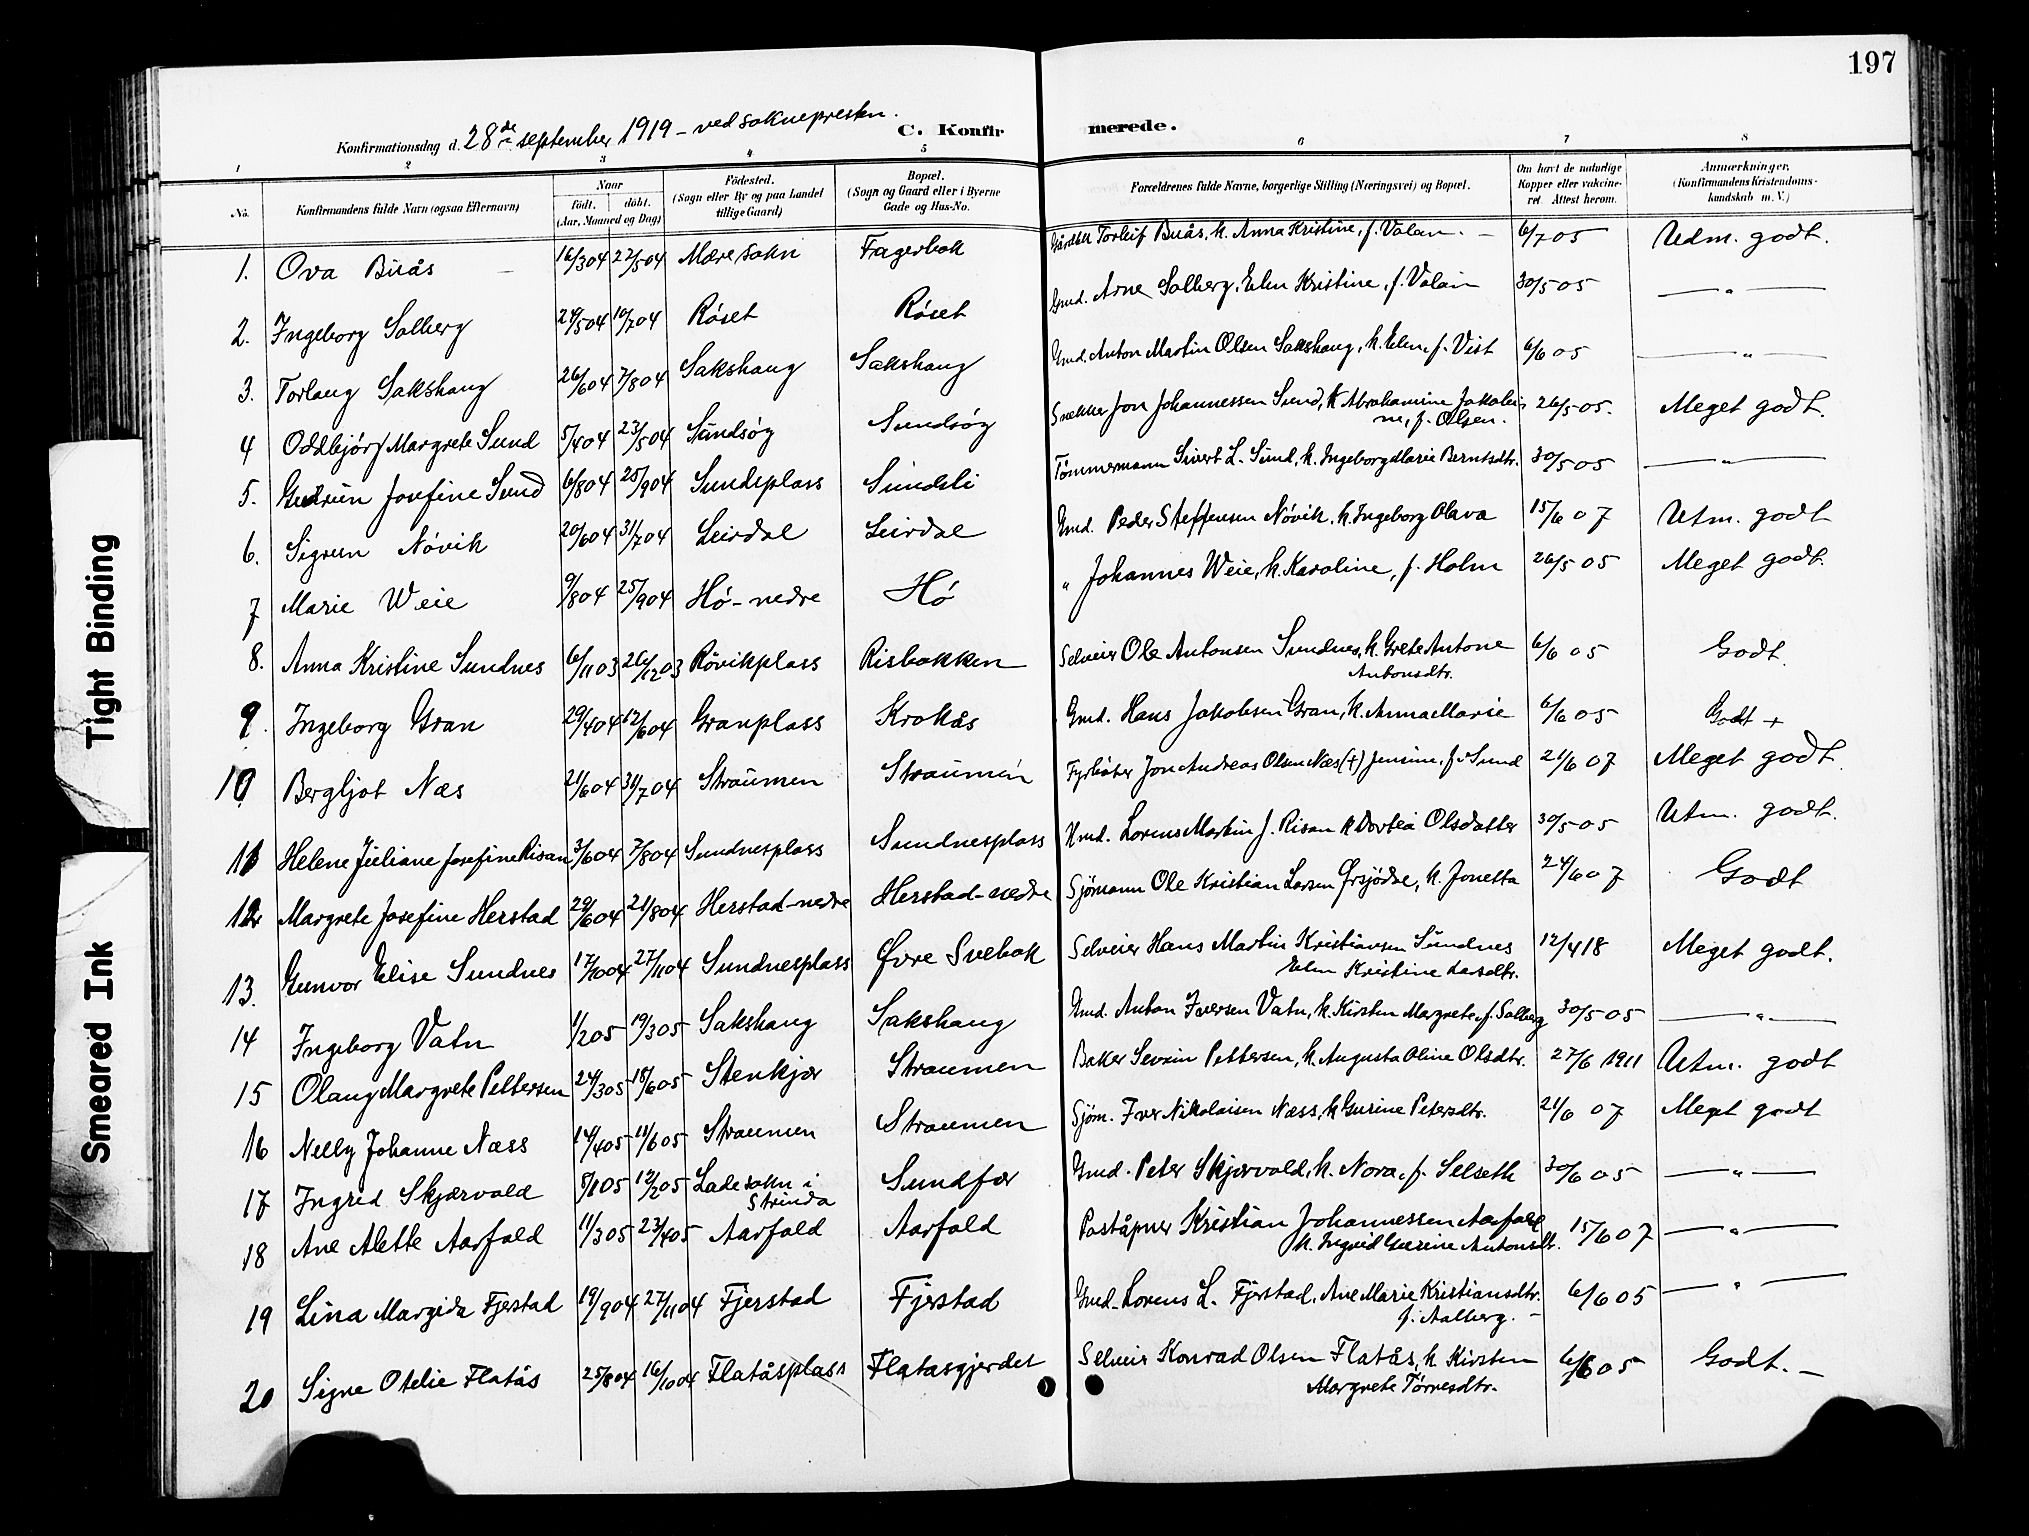 197
Konfirmationsdag d. 28de september 1919 – ved soknepresten.
C. Konfirmerede.
1 2 3 4 5 6 7 8
No. Konfirmandens fulde Navn (ogsaa Efternavn) Naar født. døbt. (Aar, Maaned og Dag) Fødested. (Sogn eller By og paa Landet tillige Gaard) Bopæl. (Sogn og Gaard eller i Byerne Gade og Hus-No. Forældrenes fulde Navne, borgerlige Stilling (Næringsvei) og Bopæl. Om havt de naturlige Kopper eller vaccineret. Attest herom. Anmærkninger. (Konfirmandens Kristendomskundskab m. V.)
1. Ova Buås 16/3 04 22/5 04 Mære sokn Fagerbak Torleif Buås, k. Anna Kristine, f. Valan. – 6/7 05 Udm. godt.
2. Ingeborg Solberg 29/5 04 10/7 04 Røset Røset Gmd. Arne Solberg, Elen Kristine, f. Valan 30/5 05 – " –
3. Torlaug Sakshaug 26/6 04 7/8 04 Sakshaug Sakshaug Gmd. Anton Martin Olsen Sakshaug, k. Elen, f. Vist 6/6 05 – " –
4 Oddbjørg Margrete Sund 5/4 04 23/5 04 Sundsøy Sundsøy Snekker Jon Johannessen Sund, k. Abrahamine Jakobine, f. Olsen. 26/5 05. Meget godt.
5. Gudrun Josefine Sund 6/8 04 25/9 04 Sundsplass Sundsli Tømmermann Sivert L. Sund, k. Ingeborg Marie Berntsdtr. 30/5 05 – " –
6. Sigrun Nøvik 20/6 04 31/7 04 Leirdal Leirdal Gmd. Peder Steffensen Nøvik, k. Ingeborg Olava 15/6 07 Utm. godt
7 Marie Weie 9/8 04 25/9 04 Hø-nedre Hø " Johannes Weie, k. Karoline, f. Holm 26/5 05 Meget godt.
8. Anna Kristine Sundnes 6/11 03 26/12 03 Røvikplass Risbakken Selveier Ole Antonsen Sundnes, k. Grete Antone Antonsdtr. 6/6 05 Godt.
9. Ingeborg Gran 29/4 04 12/6 04 Granplass Krokås Gmd. Hans Jakobsen Gran, k. Anna Marie 6/6 05 Godt +
10 Bergljot Næs 21/6 04 31/7 04 Straumen Straumen Fyrbøter Jon Andreas Olsen Næs (+) Jenine, f. Sund 21/6 07 Meget godt.
11 Helene Juliane Josefine Risan 3/6 04 7/8 04 Sundnesplass Sundnesplass Hmd. Lorens Martin J. Risan k Dortea Olsdatter 30/5 05 Utm. godt.
12 Margrete Josefine Herstad 29/6 04 21/8 04 Herstad-nedre Herstad-nedre Sjømann Ole Kristian Larsen Ørsjødse, k. Jonetta 24/6 07 Godt
13. Gunvor Elise Sundnes 17/10 04 27/11 04 Sundnesplass Øvre Svebak Selveier Hans Martin Kristiansen Sundnes Elen Kristine Larsdtr. 12/4 18 Meget godt.
14 Ingeborg Vatn 1/2 05 19/3 05 Sakshaug Sakshaug Gmd. Anton Iversen Vatn, k. Kirsten Margrete, f. Solberg 30/5 05 – " –
15 Olaug Margrete Pettersen 24/3 05 18/6 05 Stenkjær Straumen Baker Sevrin Pettersen, k. Augusta Oline Olsdtr. 27/6 1911 Utm. godt
16 Nelly Johanne Næss 14/4 05 11/6 05 Straumen Straumen Sjøm. Iver Nikolaisen Næss, k Gurine Petersdtr. 21/6 07 Meget godt
17 Ingrid Skjærvold 5/1 05 12/2 05 Lade sokn i Strinda Sundfær Gmd. Peter Skjærvold, k. Nora, f. Selseth 30/6 05 – " –
18 Ane Alette Aarfald 11/3 05 23/4 05 Aarfald Aarfald Poståpner Kristian Johannessen Aarfald k. Ingrid Gurine Antonsdtr. 15/6 07 – " –
19 Lina Margida Fjerstad 19/9 04 27/11 04 Fjerstad Fjerstad Gmd. Lorens L. Fjerstad, Ane Marie Kristiansdtr. f. Aalberg. – 6/6 05 – " –
20 Signe Otelie Flatås 25/8 04 16/10 04 Flatåsplass Flatåsgjerdet Selveier Konrad Olsen Flatås, k Kirsten Margrete Tørresdtr. 6/6 05 Godt. –
Tight Binding
Smeared Ink